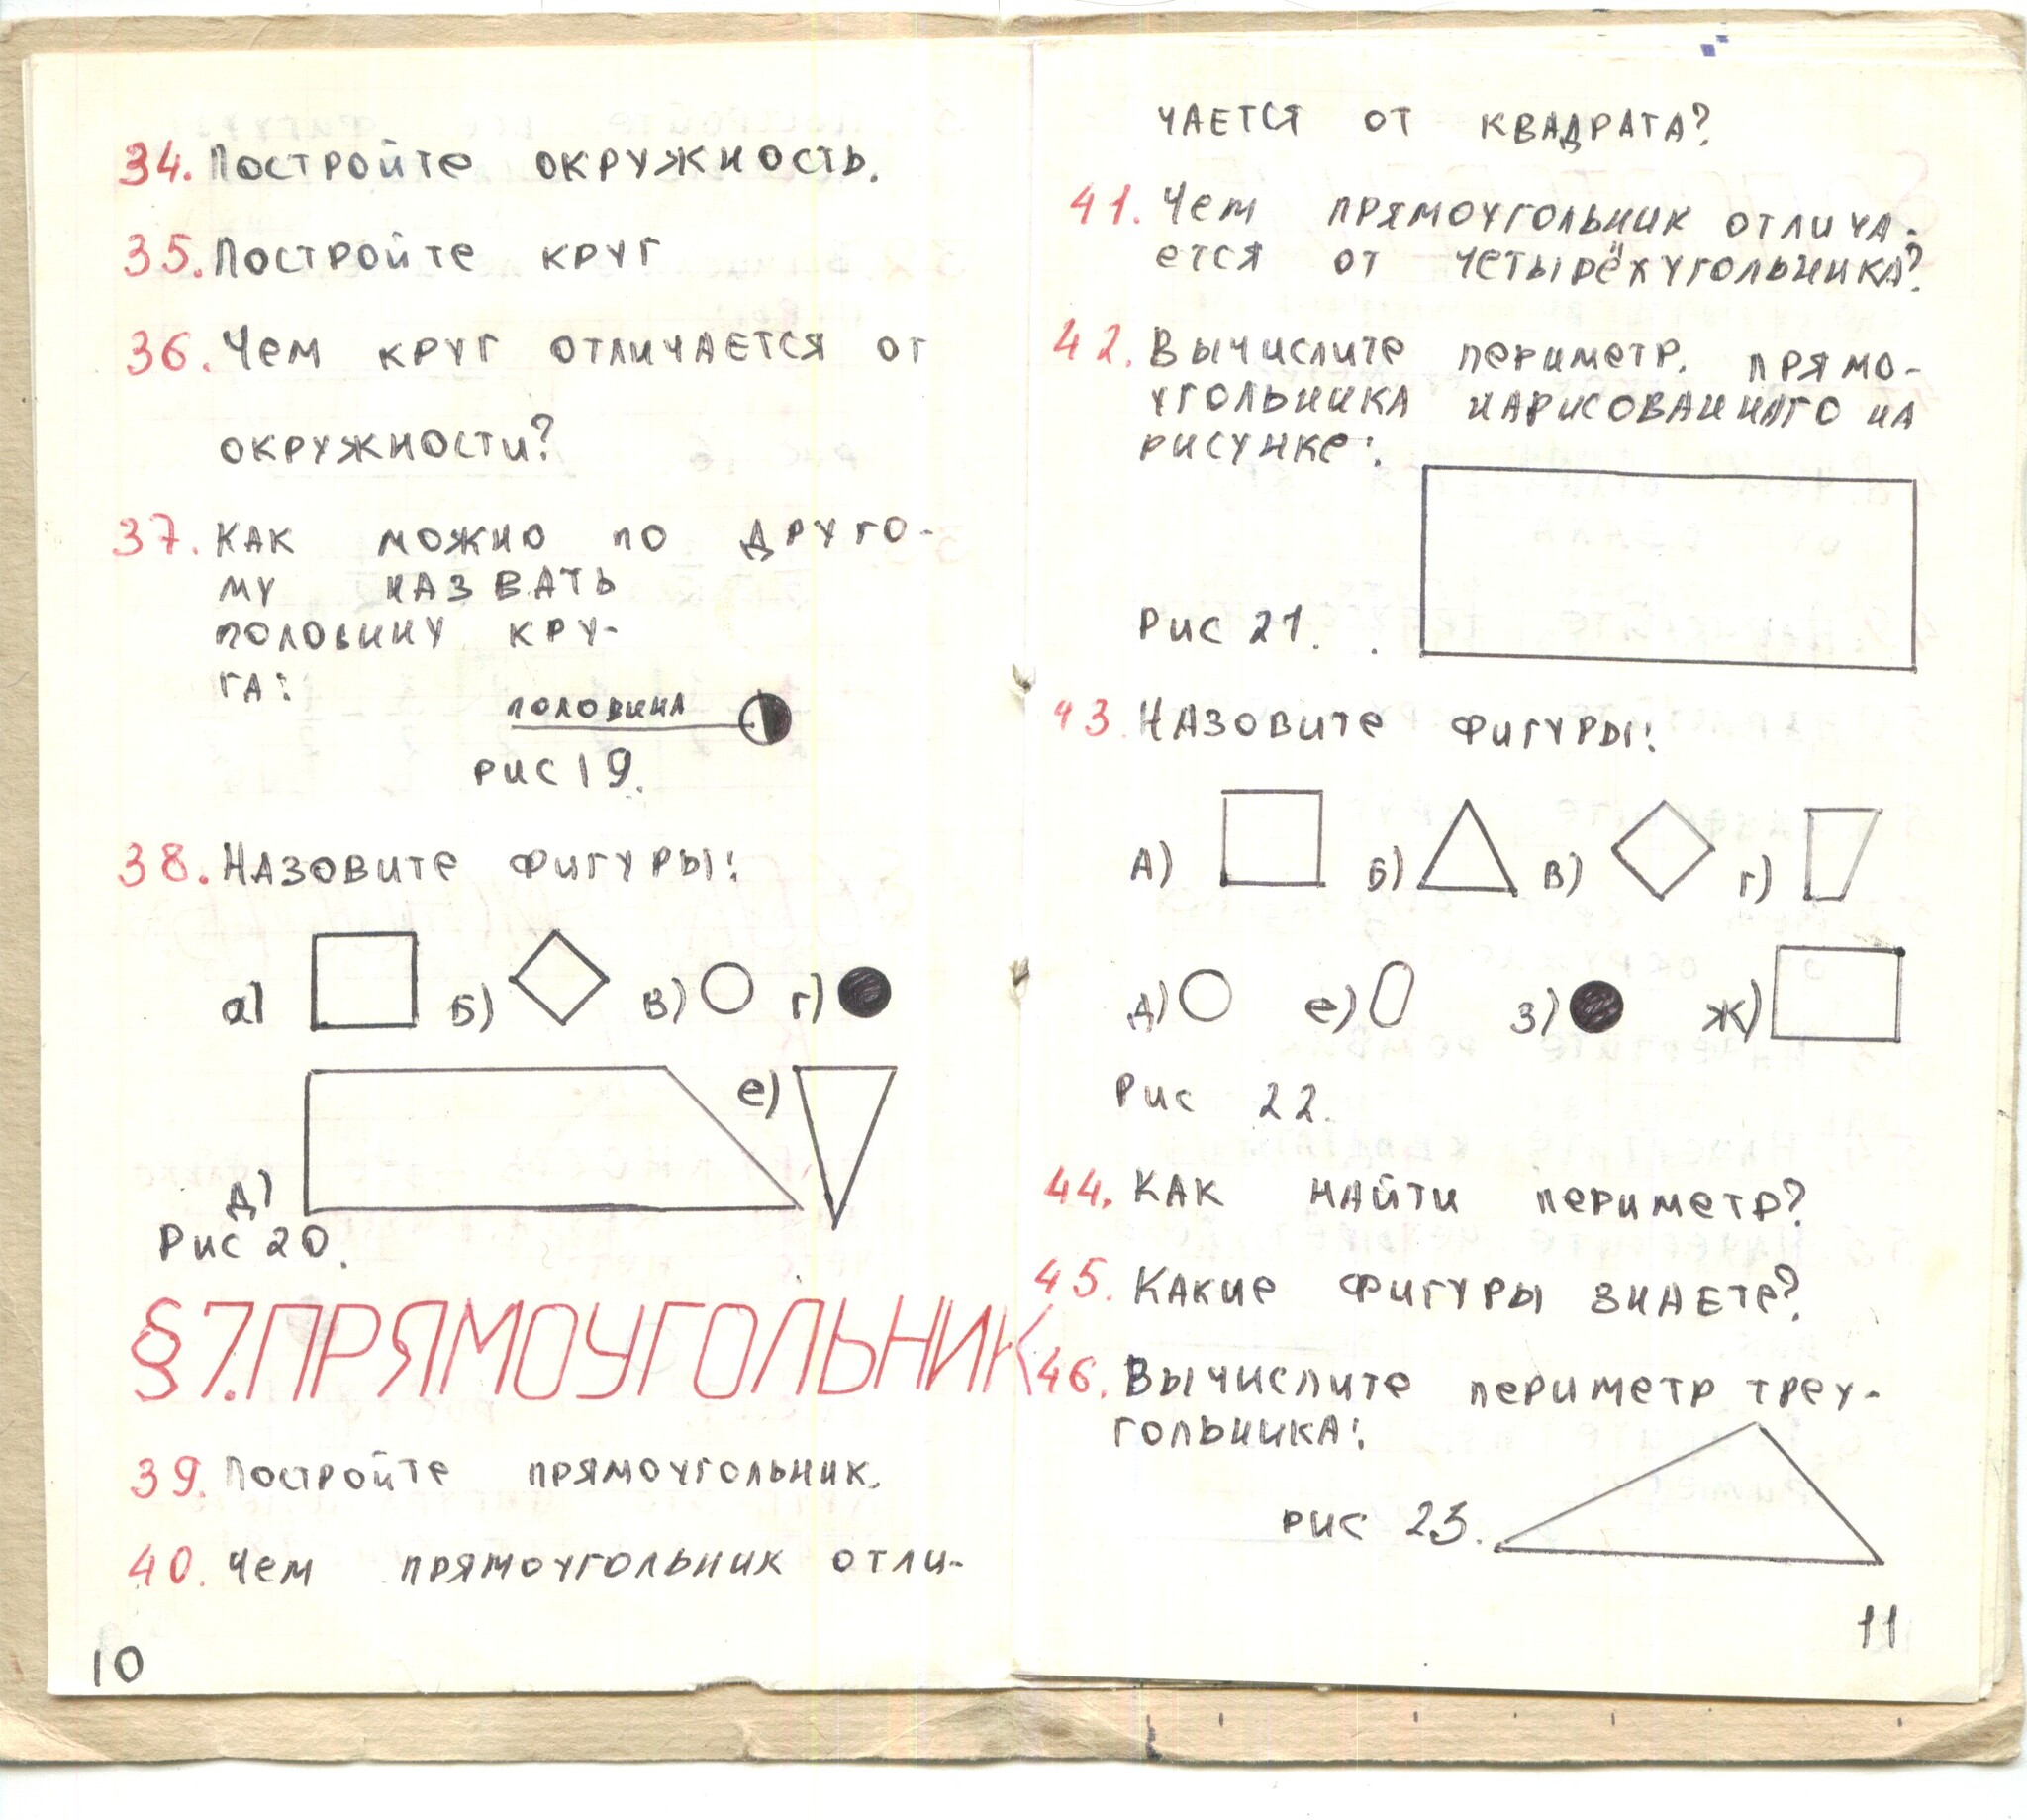 34. Постройте окружность.
35. Постройте круг
36. Чем круг отличается от
окружности?
37. Как можно по друго-
му назвать
половину кру-
га:
половина
рис 19.
38. Назовите фигуры:
а) б) в) г)
е)
д)
Рис 20.
§7. ПРЯМОУГОЛЬНИК
39. Постройте прямоугольник.
40. Чем прямоугольник отли-
10
чается от квадрата?
41. Чем прямоугольник отлича-
ется от четырёхугольника?
42. Вычислите периметр. прямо-
угольника нарисованнаго на
рисунке:
Рис 21.
43. Назовите фигуры:
А) Б) В) Г)
д) е) з) ж)
Рис 22.
44. Как найти периметр?
45. Какие фигуры знаете?
46. Вычислите периметр треу-
гольника:
рис 23.
11